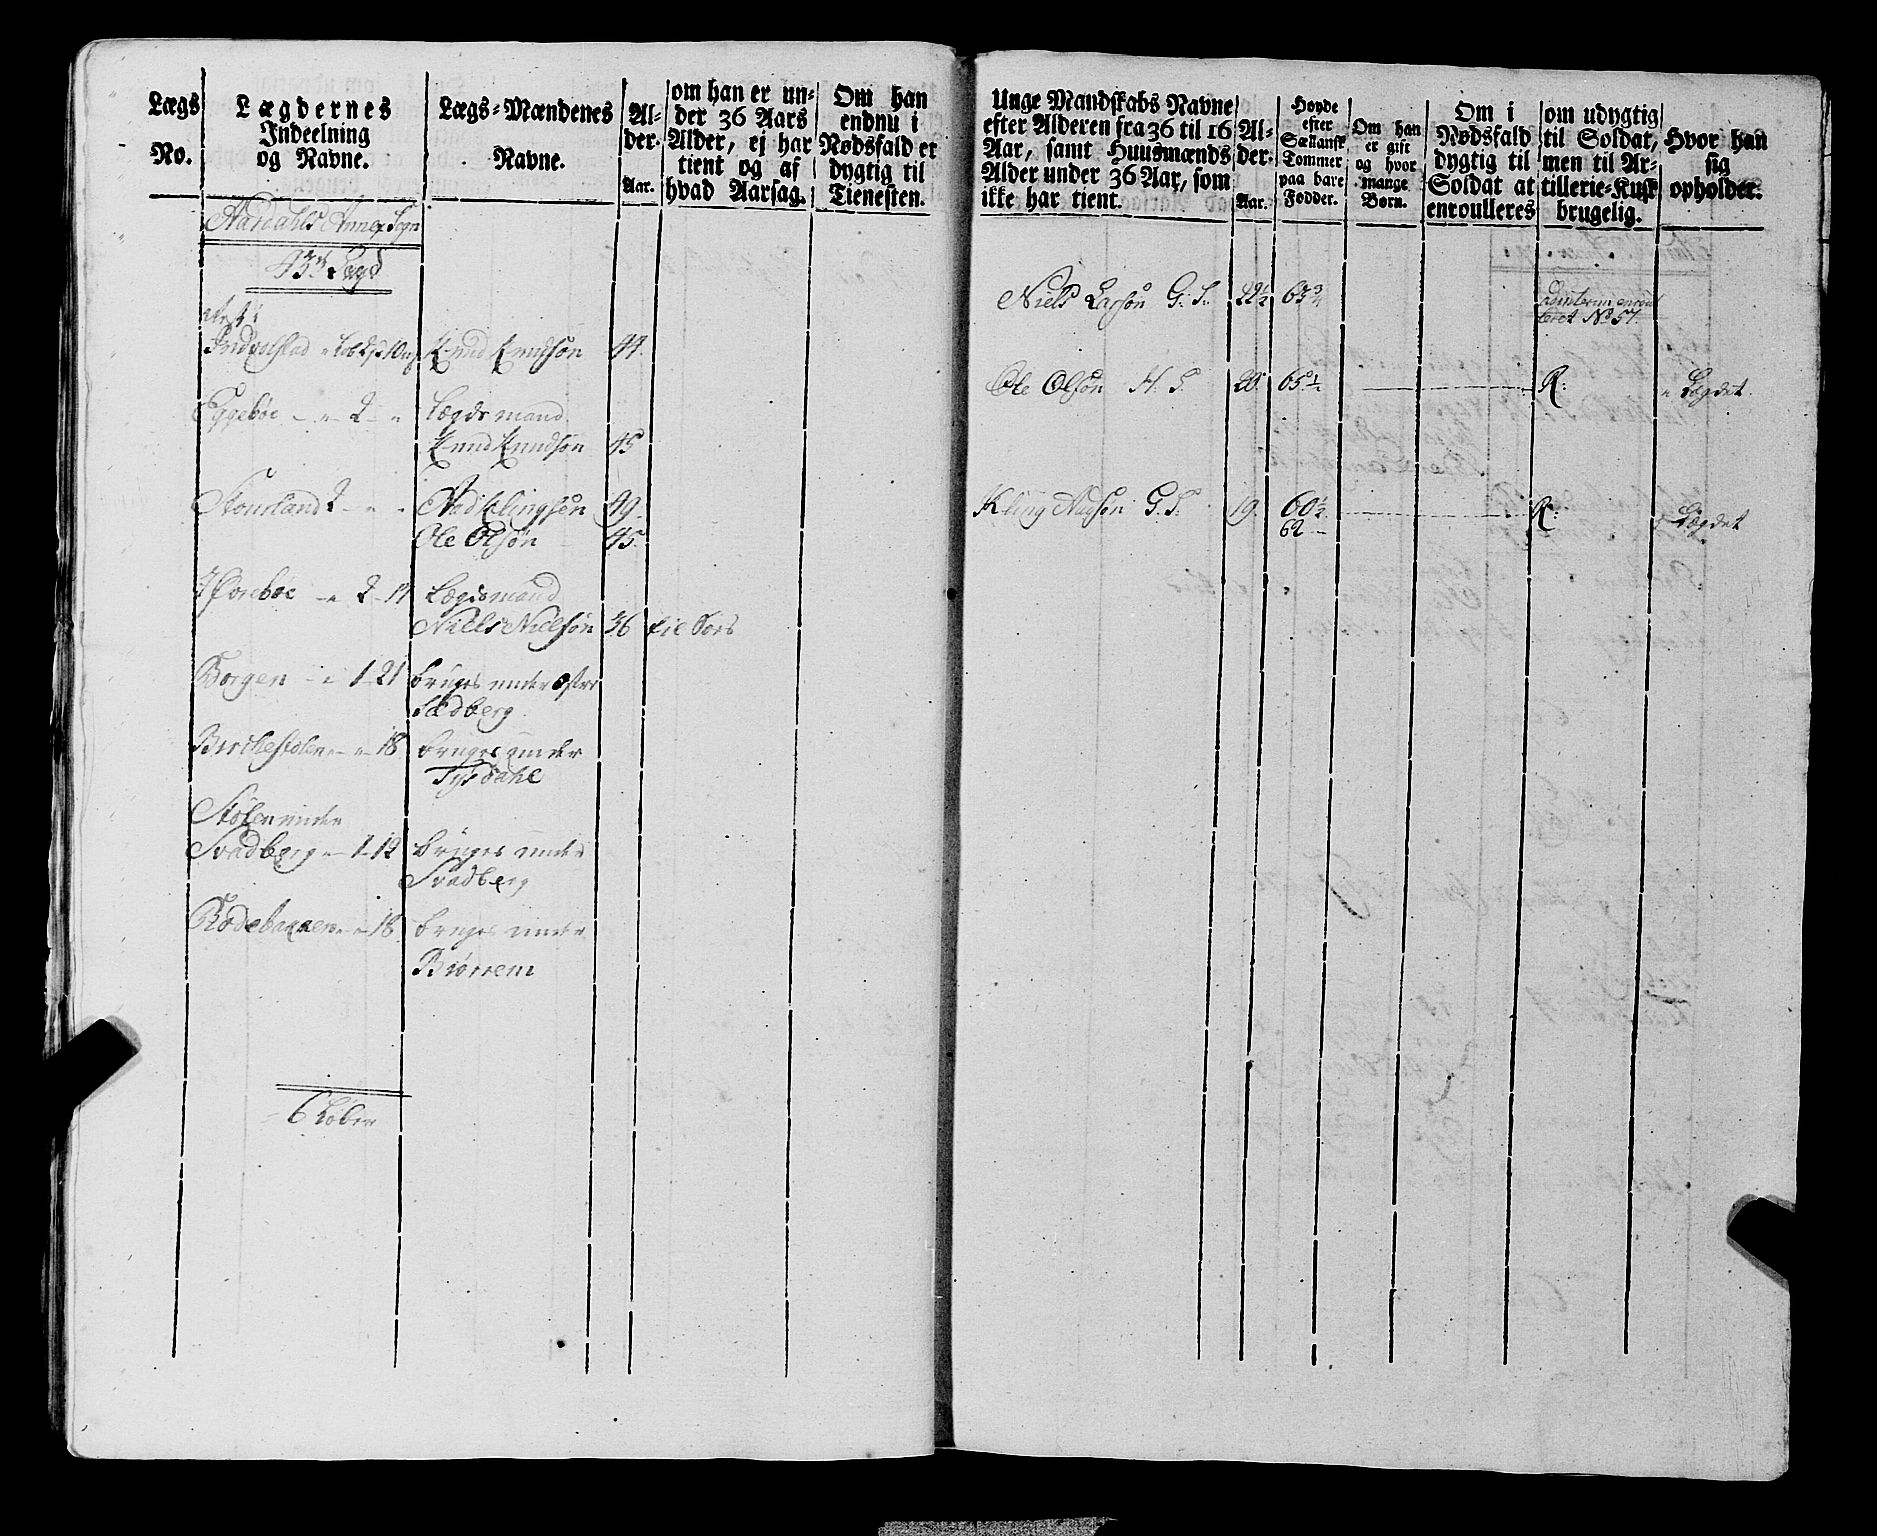 Lægs No.
Lægdernes Indeelning og Navne.
Lægs-Mændenes Navne.
Al-der. Aar.
om han er un-
der 36 Aars
Alder, ej har
tient og af
hvad Aarsag.
Om han
endnu i
Nødsfald er
dygtig til
Tienesten.
Aardahls Annex Sogn
43de Lægd
44.
Knud Knudsøn
Eggebøe - " 2 - "
Lægdsmand
Knud Knudsøn 45
Stourland 2 - " -
Aad Klingsøn 49.
Ole Olsøn - 45.
Lægdsmand
Niels Nielsøn 36
Borgen - " 1 - 21
bruges under østre
Sædberg
18
bruges under
Tysdahl
Stølen under
Svadberg " - 1 - 12
bruges under
Svadberg
18
bruges under
Biørrem
6 Løber
Unge Mandskabs Navne
efter Alderen fra 36 til 16
Aar, samt Huusmænds
Alder under 36 Aar, som
ikke har tjent.
Al-der. Aar.
Høyde
efter
Sællansk
Tommer
paa bare
Fødder.
Om han
er gift
og hvor
mange
Børn.
Om i
Nødsfald
dygtig til
Soldat at
enroulleres
om udygtig
til Soldat,
men til Ar-
tillerie-Kusk
brugelig.
Hvor han
sig
opholder.
Niels Larsøn G: S: 22½ 63¾
No 57.
Ole Olsøn H. S. 20. 65½ R: " Lægdet
Kling Aadsøn G. S. 19. 60½ R: Lægdet
62 -